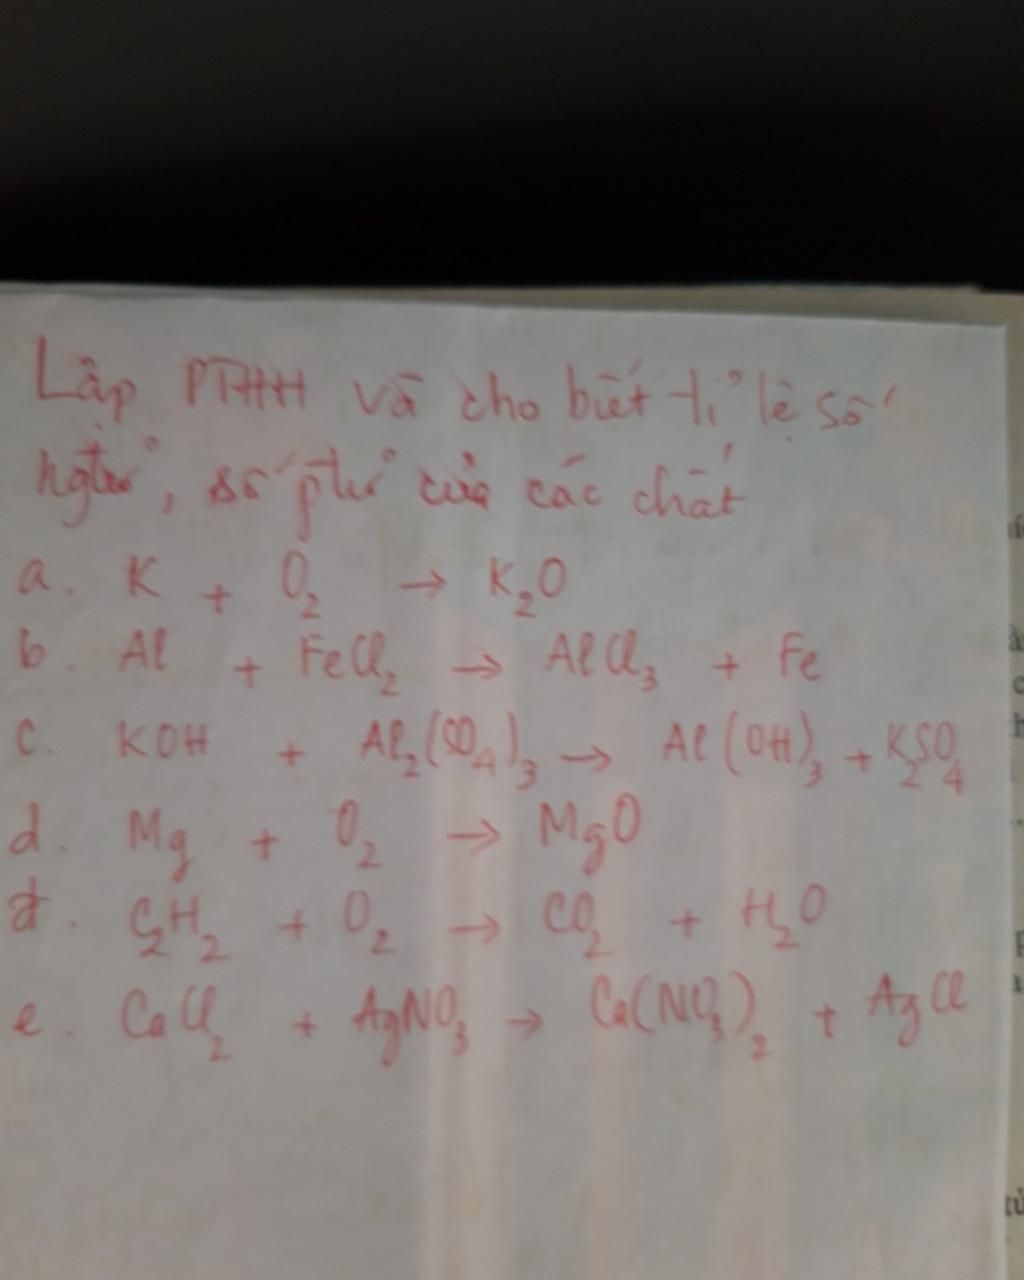 Lập PTHH và cho biết tỉ lệ số
ngtử, số ptử của các chất
a. K + O₂ → K₂O
b. Al + FeCl₂ → AlCl₃ + Fe
c. KOH + Al₂(SO₄)₃ → Al(OH)₃ + K₂SO₄
d. Mg + O₂ → MgO
đ. C₂H₂ + O₂ → CO₂ + H₂O
e. CaCl₂ + AgNO₃ → Ca(NO₃)₂ + AgCl